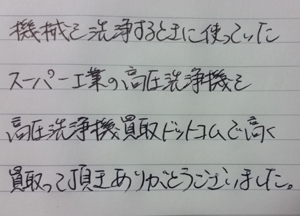 機械を洗浄するときに使っていた
スーパー工業の高圧洗浄機を
高圧洗浄機買取ドットコムで高く
買取って頂きありがとうございました。